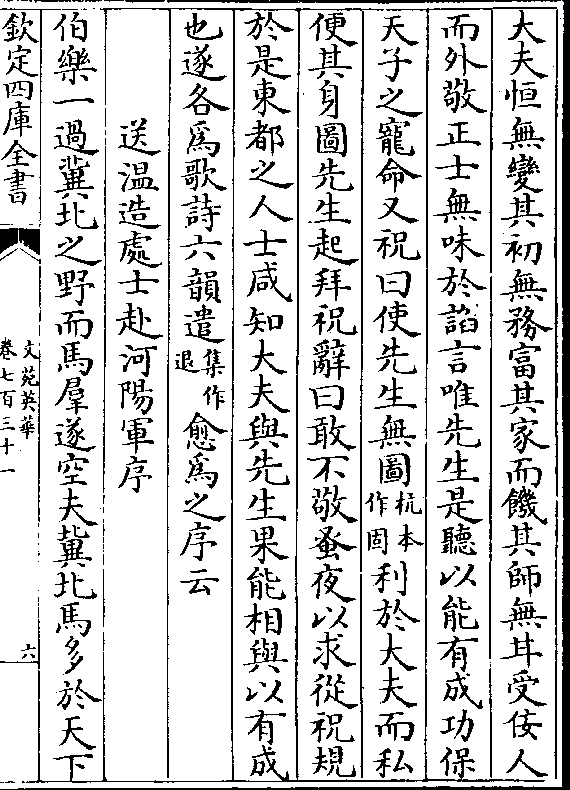 大夫恒無變其初無務富其家而饑其師無甘受佞人
而外敬正士無味於諂言唯先生是聽以能有成功保
天子之寵命又祝曰使先生無圖杭本作固利於大夫而私
便其身圖先生起拜祝辭曰敢不敬蚤夜以求從祝規
於是東都之人士咸知大夫與先生果能相與以有成
也遂各爲歌詩六韻遣集作退愈爲之序云
送温造處士赴河陽軍序
伯樂一過冀北之野而馬羣遂空夫冀北馬多於天下
欽定四庫全書
文苑英華
卷七百三十一
六